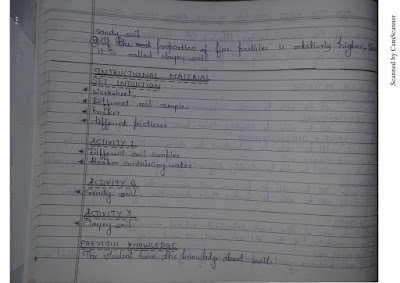 sandy soil.
If the soil proportion of fine particles is relatively higher, then
it is called clayey soil.
INSTRUCTIONAL MATERIAL
SET INDUCTION
* Worksheet,
* Different soil samples
* beaker
* different pictures
ACTIVITY 1
* Different soil samples
* Beaker containing water
ACTIVITY 2
* Sandy soil
ACTIVITY 3
* Clayey soil
PREVIOUS KNOWLEDGE
The student have the knowledge about soil.
Scanned by CamScanner